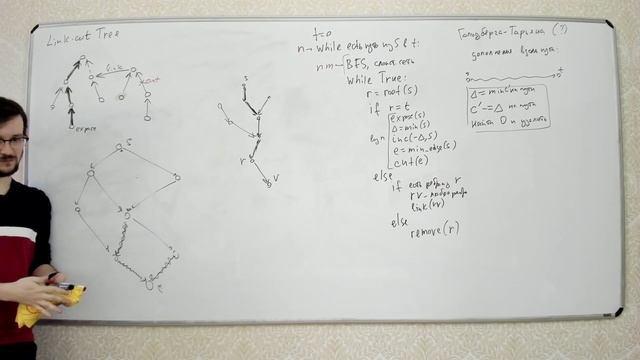 Link-cut Tree
link
cut
expose
s
t
s
r
v
f=0
n - while есть путь из S в t:
nm - BFS, слоист. сеть
while True:
r = root(s)
if r = t
expose(s)
Δ = min(s)
inc(-Δ, s)
e = min_edge(s)
cut(e)
else
if есть ребро из r
rv - 
link(rv)
else
remove(r)
Голдберга-Тарьяна (?)
дополнение вдоль пути:
s
t
Δ = min c' на пути
c' -= Δ на пути
найти 0 и удалить